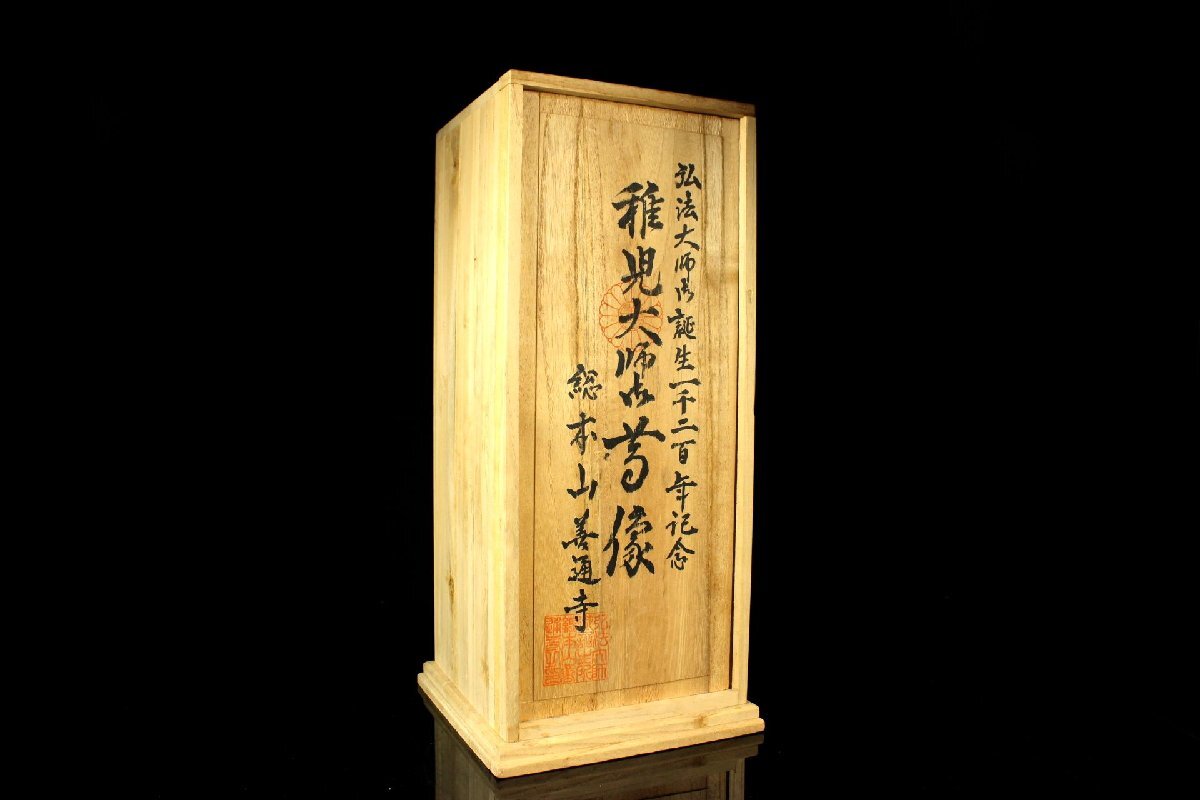 弘法大師御誕生一千二百年記念
稚児大師御尊像
総本山善通寺